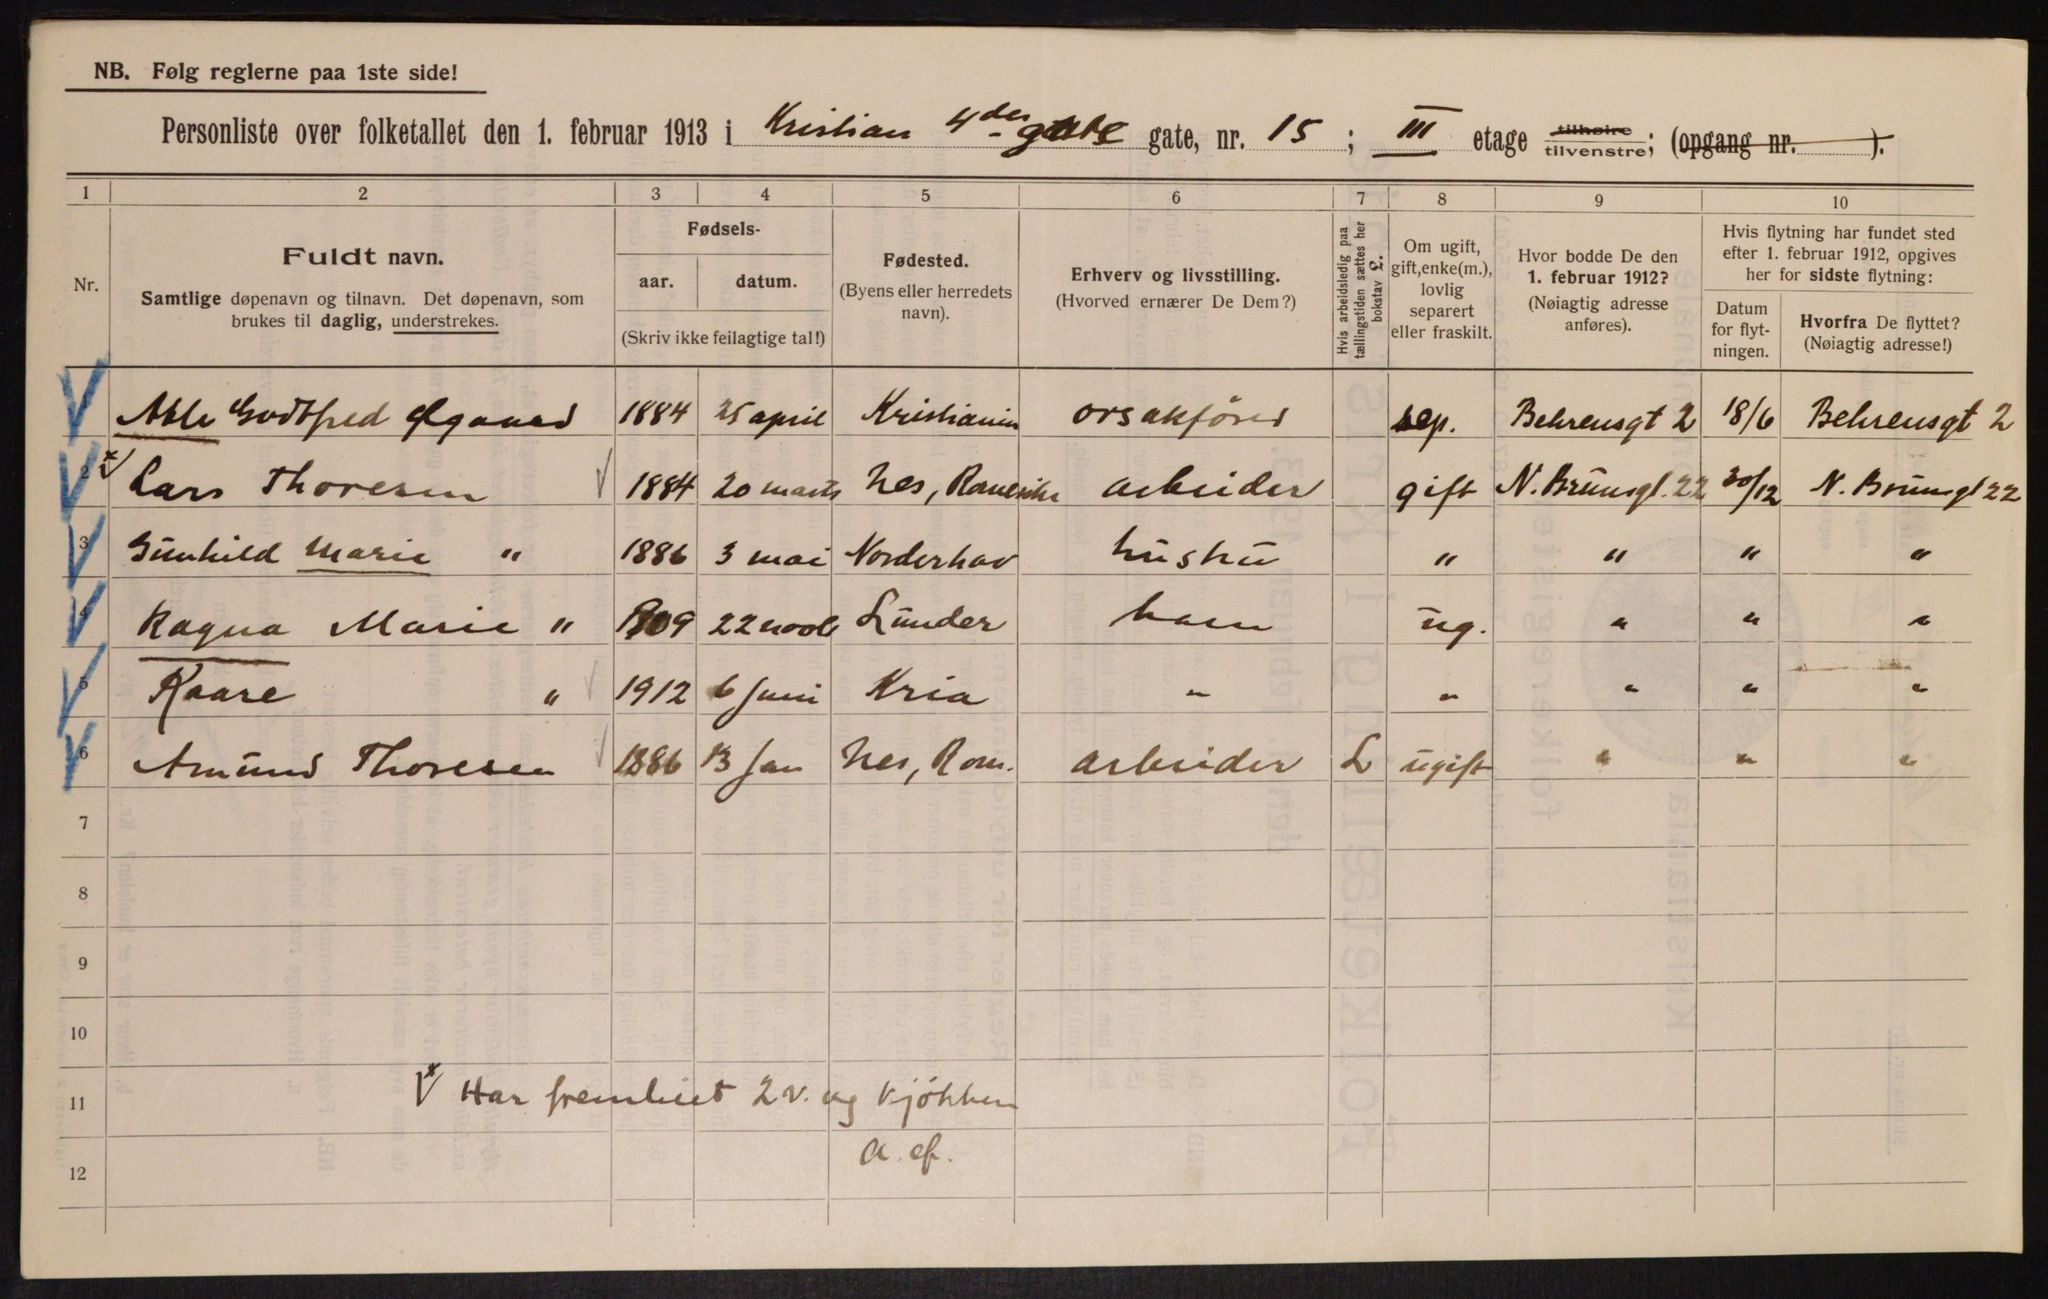 NB. Følg reglerne paa 1ste side!
Personliste over folketallet den 1. februar 1913 i Kristian 4des gate gate, nr. 15; III etage tilhøire tilvenstre; (opgang nr. ).
1 2 3 4 5 6 7 8 9 10
Nr.
Fuldt navn.
Samtlige døpenavn og tilnavn. Det døpenavn, som
brukes til daglig, understrekes.
Fødsels-
aar. datum.
(Skriv ikke feilagtige tal!)
Fødested.
(Byens eller herredets
navn).
Erhverv og livsstilling.
(Hvorved ernærer De Dem?)
Hvis arbeidsledig paa
tællingstiden sættes her
bokstav L.
Om ugift,
gift,enke(m.),
lovlig
separert
eller fraskilt.
Hvor bodde De den
1. februar 1912?
(Nøiagtig adresse
anføres).
Hvis flytning har fundet sted
efter 1. februar 1912, opgives
her for sidste flytning:
Datum
for flyt-
ningen.
Hvorfra De flyttet?
(Nøiagtig adresse!)
Godtfred 1884 25 april Kristiania sep. Behrensgt 2 18/6 Behrensgt 2
2 Lars Thoresen 1884 20 marts Nes, Romerike arbeider gift N. Brunsgt. 22 30/12 N. Brunsgt 22
3 Gunhild Marie " 1886 3 mai Norderhov hustru " " " "
Ragna Marie " 1909 22 novb Lunder barn ug. " " "
5 Kaare " 1912 6 juni Kria " " " " "
6 Amund Thoresen 1886 13 jan Nes, Rom. arbeider L ugift " " "
7
8
9
10
11 Har fremleiet 2 v. og kjökken
12